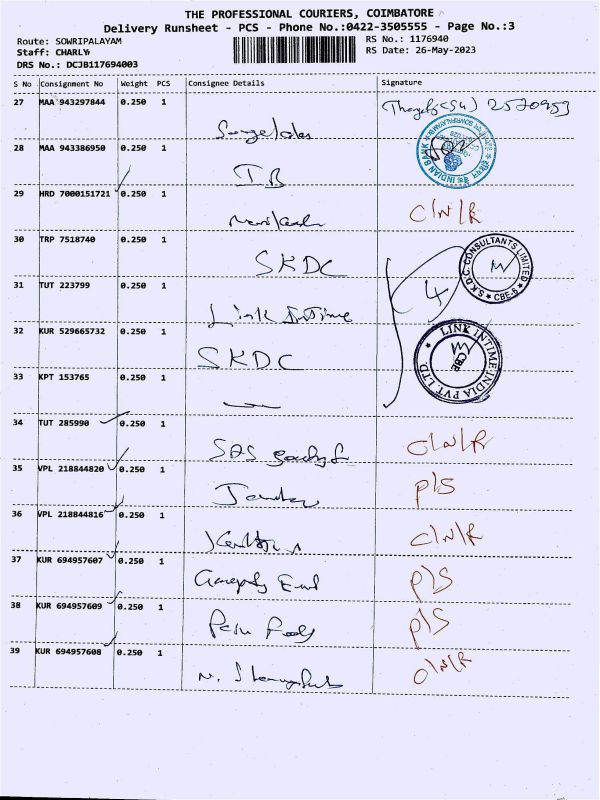 THE PROFESSIONAL COURIERS, COIMBATORE
Delivery Runsheet - PCS - Phone No.:0422-3505555 - Page No.:3
Route: SOWRIPALAYAM RS No.: 1176940
Staff: CHARLY RS Date: 26-May-2023
DRS No.: DCJB117694003
S No Consignment No Weight PCS Consignee Details Signature
27 MAA 943297844 0.250 1 2570959
28 MAA 943386950 0.250 1 IB INDIAN BANK
29 HRD 7000151721 0.250 1 C/N/R
30 TRP 7518740 0.250 1 SKDC S.K.D.C. CONSULTANTS LIMITED CBE-6
31 TUT 223799 0.250 1 Link Intime 4
32 KUR 529665732 0.250 1 SKDC LINK INTIME INDIA PVT. LTD. CBE
33 KPT 153765 0.250 1
34 TUT 285990 0.250 1 C/N/R
35 VPL 218844820 0.250 1 P/S
36 VPL 218844816 0.250 1 C/N/R
37 KUR 694957607 0.250 1 P/S
38 KUR 694957609 0.250 1 P/S
39 KUR 694957608 0.250 1 C/N/R